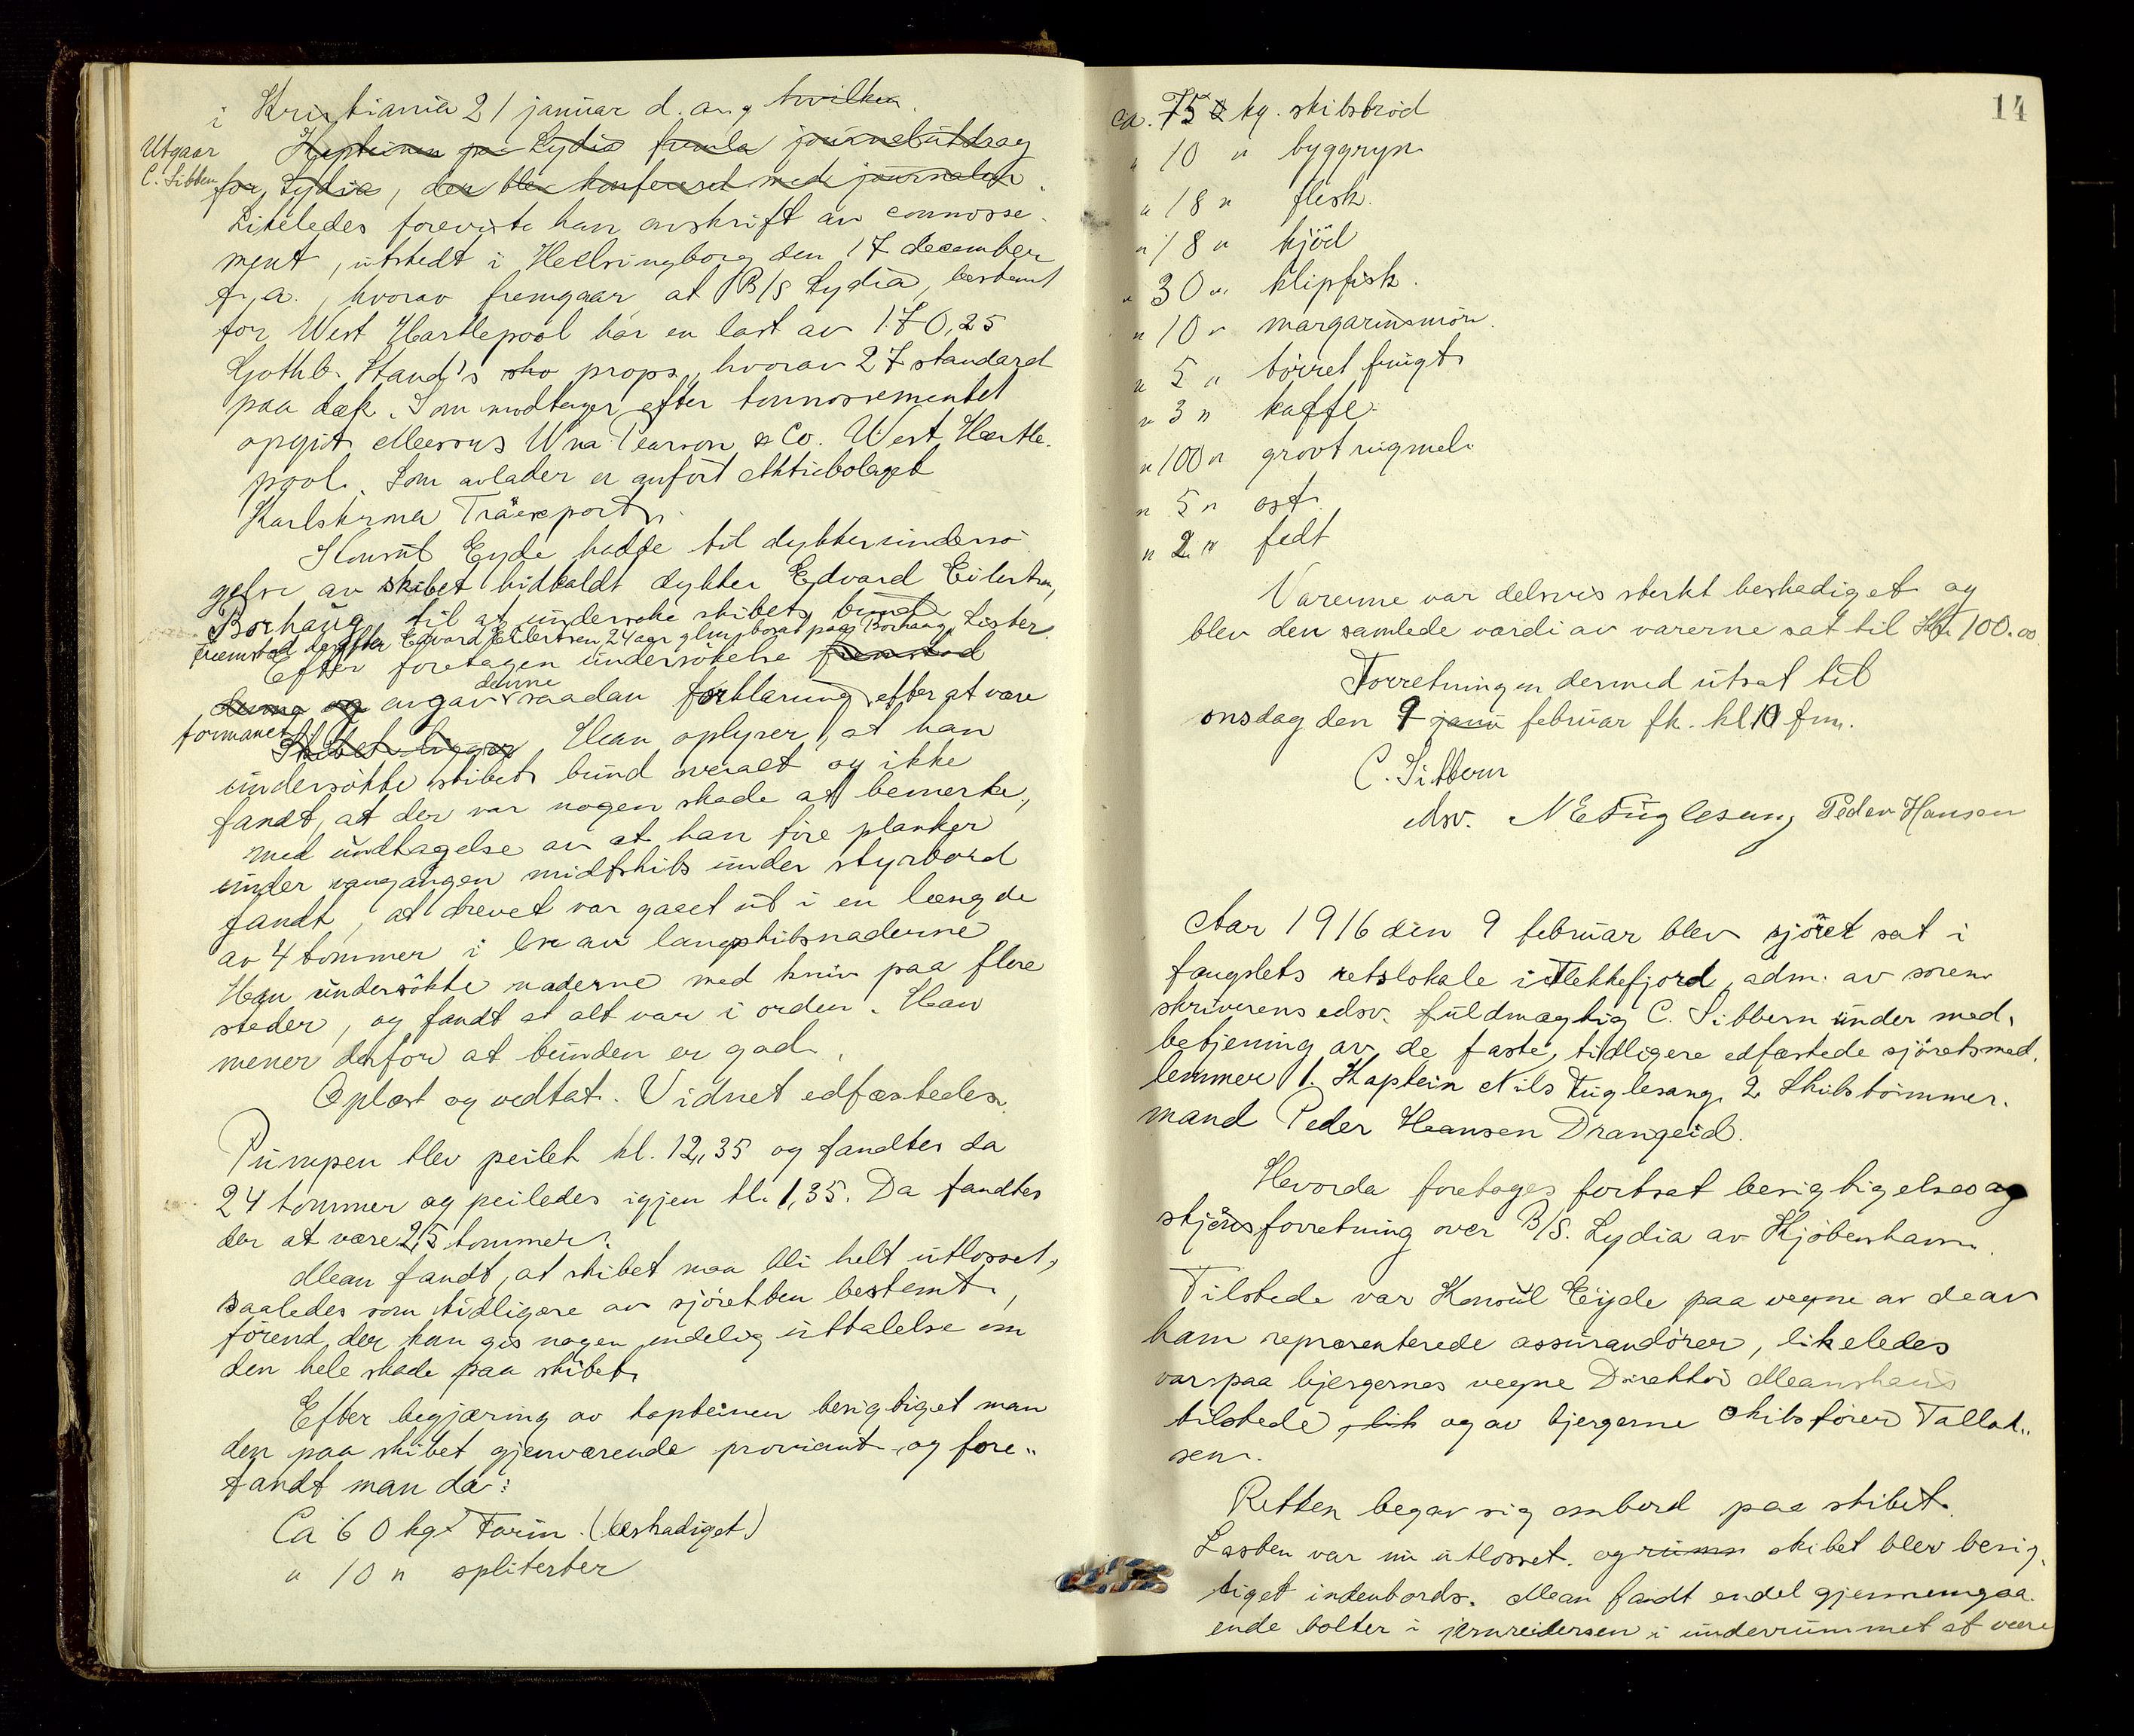 i Kristiania 21 januar d. a. og hvilken.
Utgaar
C. Sibbern
Kapteinen paa Lydia fremla journalutdrag
for Lydia, der blev konfereret med journalen.
Likeledes foreviste han avskrift av connosse-
ment, utstedt i Helsingborg den 17 december
f. a., hvorav fremgaar at B/S Lydia, bestemt
for West Hartlepool har en last av 170,25
Gothb. Stand's sko props, hvorav 27 standard
paa dæk. Som modtager efter konnossementet
opgit Messrs Wm Pearson & Co. West Hartle-
pool. Som avlader er anført Aktiebolaget
Karlskrona Träexport.
Konsul Eyde hadde til dykkerundersø-
gelse av skibet hidkaldt dykker Edvard Eilertsen,
Borhaug til at undersøke skibets bund.
Fremstod derefter Edvard Eilertsen, 24 aar gl. ung. bosat paa Borhaug, Lister.
Efter foretagen undersøkelse fremstod
denne og avgav denne saadan forklaring efter at være
formanet
Skibet ligger Han oplyser, at han
undersøkte skibets bund overalt og ikke
fandt, at der var nogen skade at bemerke,
med undtagelse av at han fire planker
under vaugangen midtskibs under styrbord
fandt, at drevet var gaaet ut i en længde
av 4 tommer i en av langskibsnaderne
Han undersøkte naderne med kniv paa flere
steder, og fandt at alt var i orden. Han
mener derfor at bunden er god.
Oplæst og vedtat. Vidnet edfæstedes.
Pumpen blev peilet kl. 12,35 og fandtes da
24 tommer og peiledes igjen kl. 1,35. Da fandtes
der at være 25 tommer.
Man fandt, at skibet maa bli helt utlosset,
saaledes som tidligere av sjøretten bestemt,
førend der kan gis nogen endelig uttalelse om
den hele skade paa skibet.
Efter begjæring av kapteinen besigtiget man
den paa skibet gjenværende proviant og fore-
fandt man da:
Ca 60 kg. Farin. (beskadiget)
" 10 " spliterter
14
ca. 75 kg. skibsbrød
" 10 " byggryn
" 18 " flesk.
" 18 " kjöd
" 30 " klipfisk.
" 10 " margarinsmør.
" 5 " tørret frugt
" 3 " kaffe.
" 100 " grovt rugmel.
" 5 " ost.
" 2 " fedt
Varerne var delsvis sterkt beskadiget og
blev den samlede værdi av varerne sat til Kr. 100.00.
Forretningen dermed utsat til
onsdag den 9 janu februar fk. kl. 10 fm.
C. Sibbern
edsv. N E Fuglesang Peder Hansen
Aar 1916 den 9 februar blev sjøret sat i
fængslets retslokale i Flekkefjord, adm. av soren-
skriverens edsv. fuldmægtig C. Sibbern under med-
betjening av de faste, tidligere edfæstede sjøretsmed-
lemmer 1. Kaptein Nils Fuglesang, 2. Skibstømmer-
mand Peder Hansen Drangeid.
Hvorda foretoges fortsat besigtigelses og
skjønsforretning over B/S. Lydia av Kjøbenhavn.
Tilstede var Konsul Eyde paa vegne av de av
ham repræsenterede assurandører, likeledes
var paa bjergernes vegne Direktør Manshaus
tilstede, lik og av bjergerne skibsfører Tallak-
sen.
Retten begav sig ombord paa skibet.
Lasten var nu utlosset. og rumm skibet blev besig-
tiget indenbords. Man fandt endel gjennemgaa-
ende bolter i jernreidersen i underrummet at være